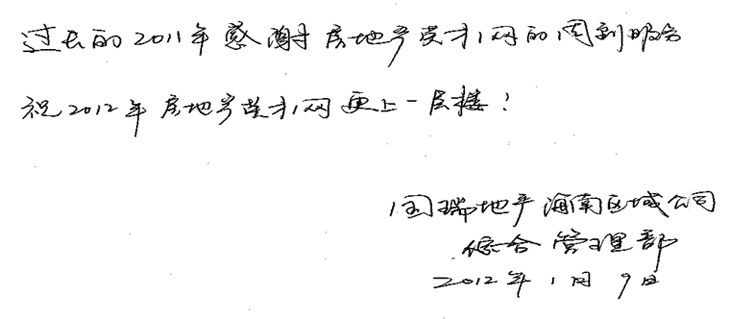 过去的2011年感谢房地产英才网的周到服务
祝2012年房地产英才网更上一层楼！
国瑞地产海南区域公司
综合管理部
2012年1月9日